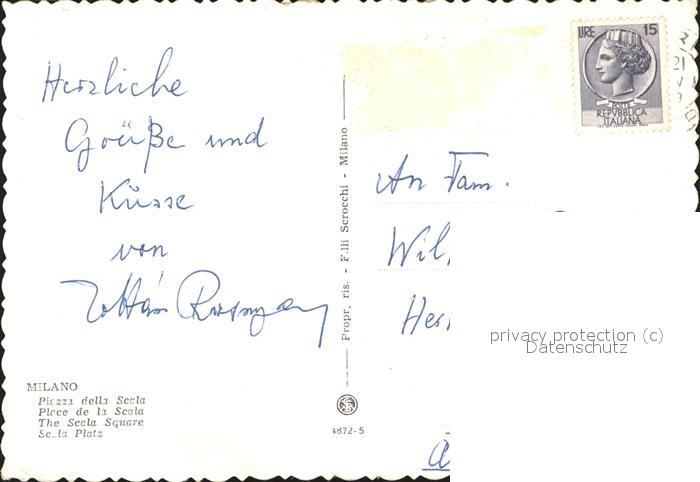 Herzliche
Grüße und
Küsse
von
Zoltán
Propr. ris. - F.lli Scrocchi - Milano
MILANO
Piazza della Scala
Place de la Scala
The Scala Square
Scala Platz
4872-5
LIRE 15
REPVBBLICA
ITALIANA
An Fam.
Wil
Her
privacy protection (c)
Datenschutz